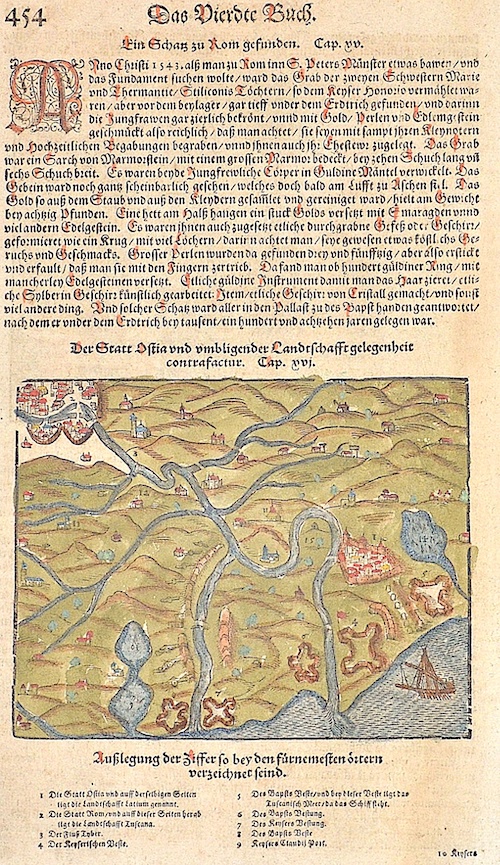 454
Das Vierdte Buch.
Ein Schatz zu Rom gefunden. Cap. xv.
ANno Christi 1543. als man zu Rom inn S. Peters Münster etwas bawen / vnd
das Fundament suchen wolte / ward das Grab der zweyen Schwestern Marie
vnd Thermantie / Stiliconis Töchtern / so dem Keyser Honorio vermählet wa-
ren / aber vor dem beylager / gar tieff vnder dem Erdtrich gefunden / vnd darinn
die Jungfrawen gar zierlich bekrönt / vnnd mit Gold / Perlen vnd Edlemgestein
geschmückt also reichlich / daß man achtet / sie seyen mit sampt jhren Kleynotern
vnd Hochzeitlichen Begabungen begraben / vnnd jhnen auch jhr Ehestewr zugelegt. Das Grab
war ein Sarch von Marmorstein / mit einem grossen Marmor bedeckt / bey zehen Schuch lang vñ
sechs Schuch breit. Es waren beyde Jungfrewliche Cörper in Guldine Mäntel verwickelt. Das
Gebein ward noch gantz scheinbarlich gesehen / welches doch bald am Lufft zu Aschen fiel. Das
Gold so auß dem Staub vnd auß den Kleydern gesamlet vnd gereiniget ward / hielt am Gewicht
bey achtzig Pfunden. Eine hett am Halß hangen ein stuck Golds versetzt mit Smaragden vnnd
viel andern Edelgestein. Es waren jhnen auch zugesetzt etliche durchgrabne Gefeß oder Geschirr /
geformieret wie ein Krug / mit viel Löchern / darinn achtet man / seye gewesen etwas köstliches Ge-
ruchs vnd Geschmacks. Grosser Perlen wurden da gefunden drey vnd fünfftzig / aber also erstickt
vnd erfault / daß man sie mit den Fingern zertrieb. Da fand man ob hundert güldiner Ring / mit
mancherley Edelgesteinen versetzt. Etliche güldine Instrument damit man das Haar zieret / etli-
che Sylberin Geschirr künstlich gearbeitet: Item / etliche Geschirr von Cristall gemacht / vnd sonst
viel andere ding. Vnd solcher Schatz ward aller in den Pallast zu des Bapst handen geantwortet /
nach dem er vnder dem Erdtrich bey tausent / ein hundert vnd achtzehen jaren gelegen war.
Der Statt Ostia vnd vmbligender Landtschafft gelegenheit
contrafactur. Cap. xvj.
Außlegung der Ziffer so bey den fürnemesten örtern
verzeichnet seind.
1 Die Statt Ostia vnd auff derselbigen Seiten
ligt die Landschafft Latium genannt.
2 Die Statt Rom / vnd auff dieser Seiten herab
ligt die Landschafft Tuscana.
3 Der Fluß Tyber.
4 Der Keyserischen Veste.
5 Des Bapsts Veste / vnd bey dieser Veste ligt das
Tuscanisch Meer / da das Schiff steht.
6 Des Bapsts Vestung.
7 Des Keysers Vestung.
8 Des Bapsts Veste
9 Keysers Claudij Port.
10 Keysers